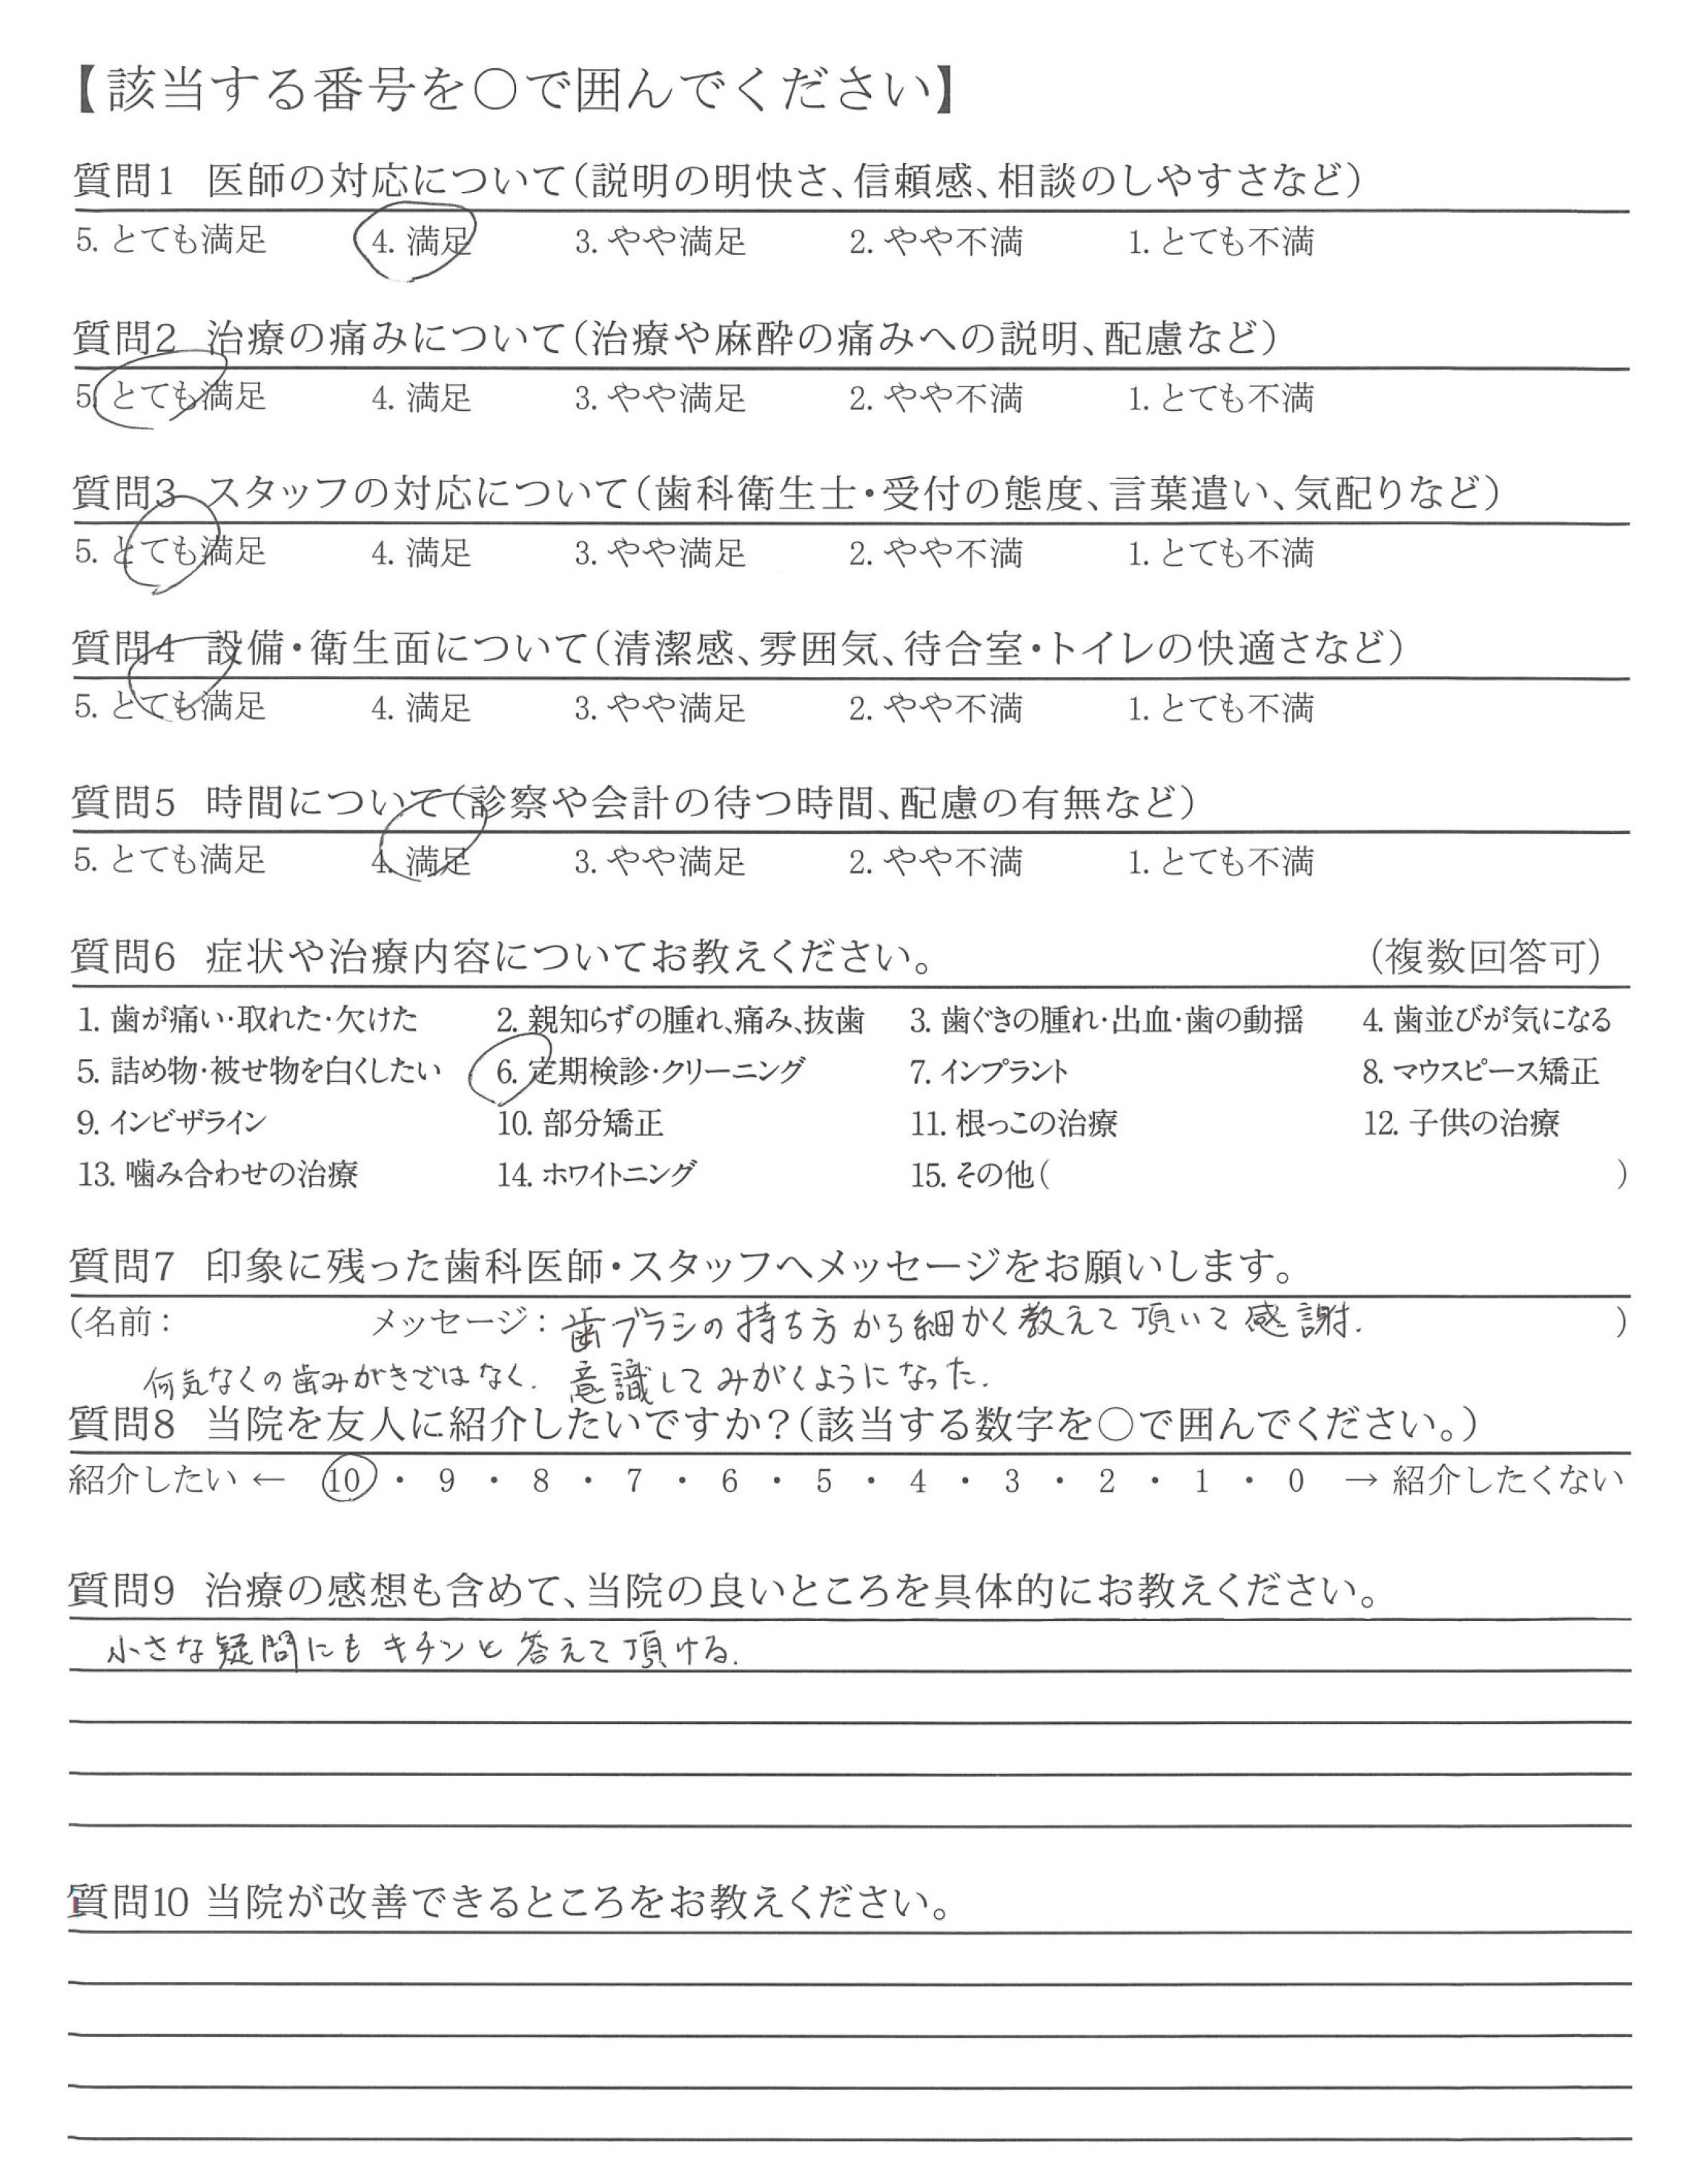 【該当する番号を○で囲んでください】
質問1 医師の対応について（説明の明快さ、信頼感、相談のしやすさなど）
5. とても満足 4. 満足 3. やや満足 2. やや不満 1. とても不満
質問2 治療の痛みについて（治療や麻酔の痛みへの説明、配慮など）
5. とても満足 4. 満足 3. やや満足 2. やや不満 1. とても不満
質問3 スタッフの対応について（歯科衛生士・受付の態度、言葉遣い、気配りなど）
5. とても満足 4. 満足 3. やや満足 2. やや不満 1. とても不満
質問4 設備・衛生面について（清潔感、雰囲気、待合室・トイレの快適さなど）
5. とても満足 4. 満足 3. やや満足 2. やや不満 1. とても不満
質問5 時間について（診察や会計の待つ時間、配慮の有無など）
5. とても満足 4. 満足 3. やや満足 2. やや不満 1. とても不満
質問6 症状や治療内容についてお教えください。 （複数回答可）
1. 歯が痛い・取れた・欠けた 2. 親知らずの腫れ、痛み、抜歯 3. 歯ぐきの腫れ・出血・歯の動揺 4. 歯並びが気になる
5. 詰め物・被せ物を白くしたい 6. 定期検診・クリーニング 7. インプラント 8. マウスピース矯正
9. インビザライン 10. 部分矯正 11. 根っこの治療 12. 子供の治療
13. 噛み合わせの治療 14. ホワイトニング 15. その他（ ）
質問7 印象に残った歯科医師・スタッフへメッセージをお願いします。
（名前： メッセージ：歯ブラシの持ち方から細かく教えて頂いて感謝. ）
何気なくの歯みがきではなく. 意識してみがくようになった.
質問8 当院を友人に紹介したいですか？（該当する数字を○で囲んでください。）
紹介したい ← 10 ・ 9 ・ 8 ・ 7 ・ 6 ・ 5 ・ 4 ・ 3 ・ 2 ・ 1 ・ 0 → 紹介したくない
質問9 治療の感想も含めて、当院の良いところを具体的にお教えください。
小さな疑問にもキチンと答えて頂ける.
質問10 当院が改善できるところをお教えください。